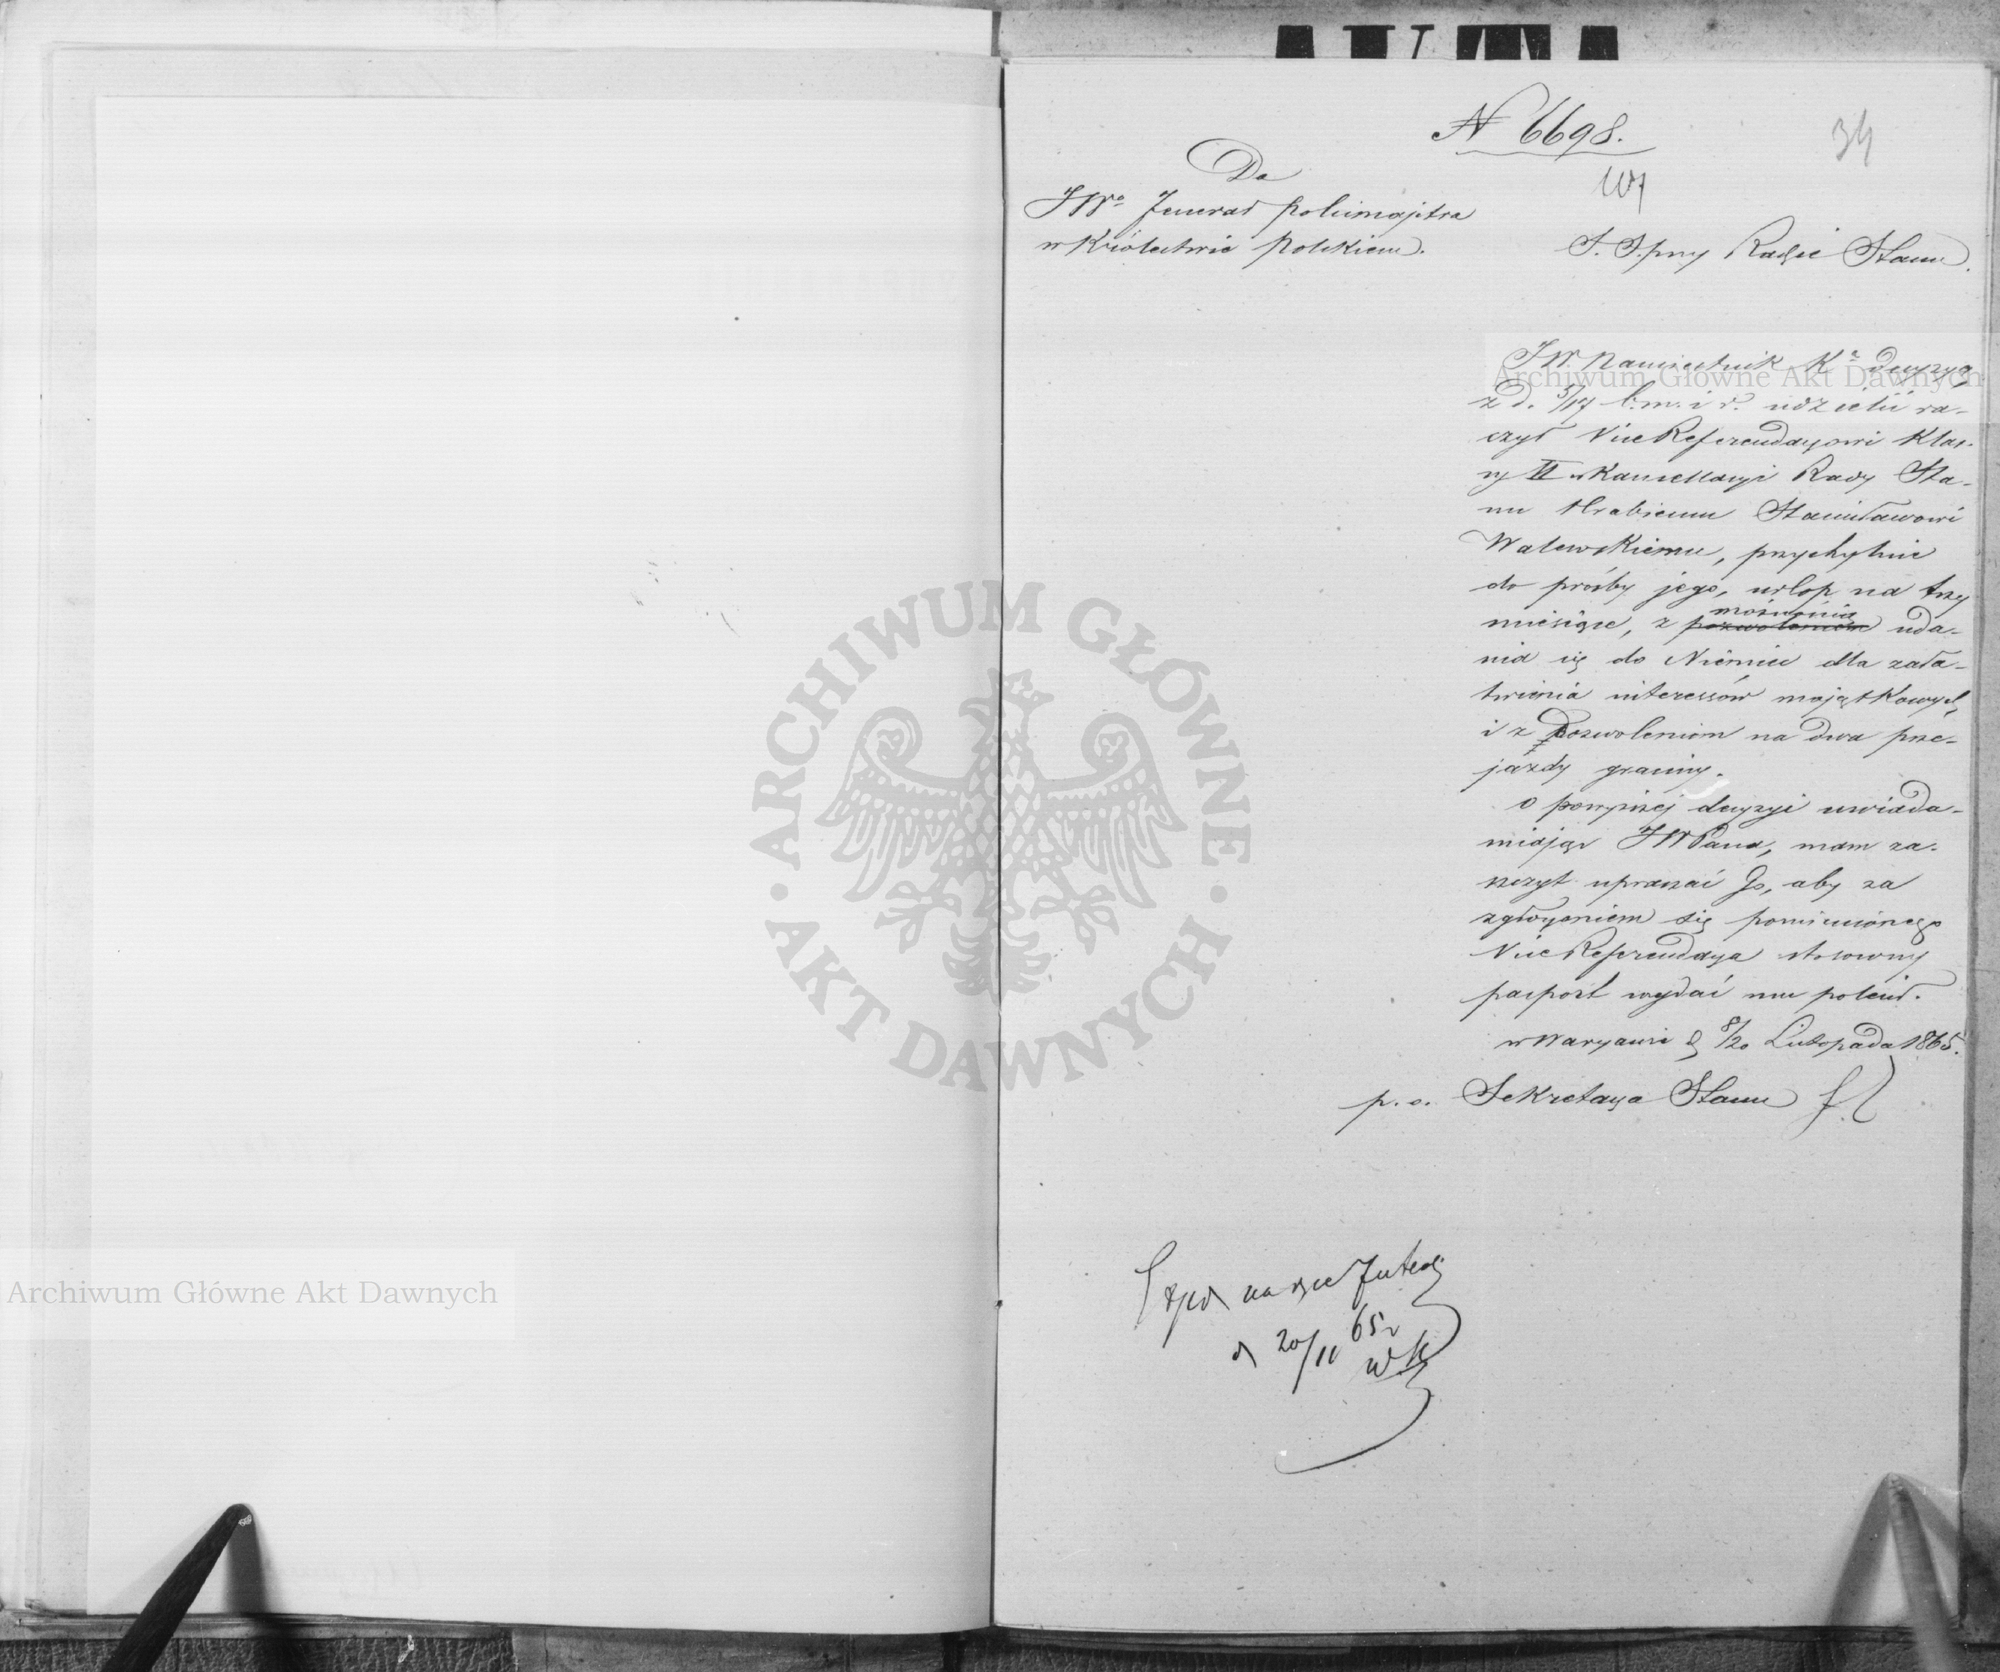 N 6698.
34
Do
JWo Jenerał policmajstra
w Królestwie Polskiem.
S. S. przy Radzie Stanu.
JW. Namiestnik Kr decyzyą
z d. 5/17 b. m. i r. udzielić ra-
czył ViceReferendarzowi Klas-
sy II w Kancellaryi Rady Sta-
nu Hrabiemu Stanisławowi
Walewskiemu, przychylnie
do prośby jego, urlop na trzy
możnością
miesiące, z pozwoleniem uda-
nia się do Niemiec dla zała-
twienia interessów majątkowych,
i z pozwoleniem na dwa prze-
jazdy granicy.
O powyższej decyzyi uwiada-
miając JWPana, mam za-
szczyt upraszać Go, aby za
zgłoszeniem się pomienionego
ViceReferendarza stosowny
paszport wydać mu polecił.
w Warszawie d 8/20 Listopada 1865.
p. o. Sekretarza Stanu
na ręce
d 20/11 65 r
WK
ARCHIWUM GŁÓWNE
AKT DAWNYCH
Archiwum Główne Akt Dawnych
Archiwum Główne Akt Dawnych